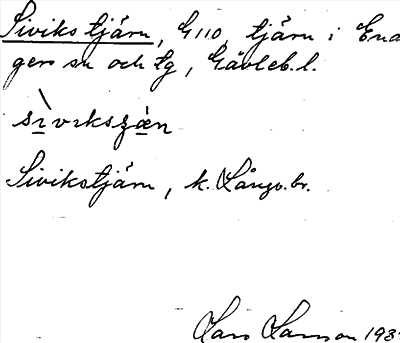 Sivikstjärn, G110, tjärn i Ena
gers sn och tg, Gävleb.l.
sìvıkszæ̀n
Sivikstjärn, k. Långv.br.
Lars Larsson 193